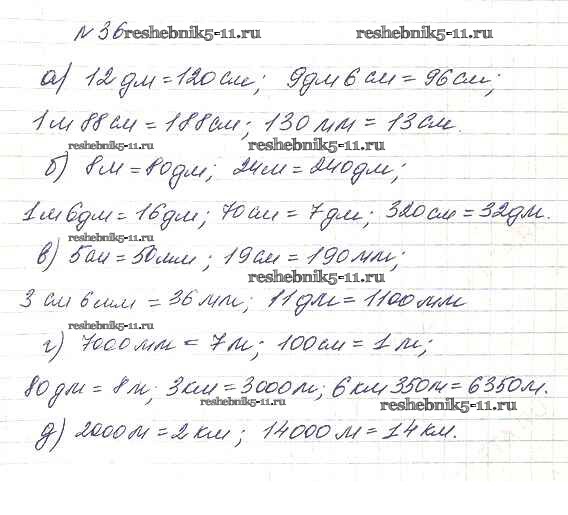 №36 reshebnik5-11.ru reshebnik5-11.ru
а) 12 дм = 120 см; 9дм 6 см = 96 см;
1 м 88 см = 188 см; 130 мм = 13 см.
reshebnik5-11.ru reshebnik5-11.ru
б) 8 м = 80 дм; 24 м = 240 дм;
1 м 6 дм = 16 дм; 70 см = 7 дм; 320 см = 32 дм.
reshebnik5-11.ru
в) 5 см = 50 мм; 19 см = 190 мм;
reshebnik5-11.ru
3 см 6 мм = 36 мм; 11 дм = 1100 мм
reshebnik5-11.ru
г) 7000 мм = 7 м; 100 см = 1 м;
80 дм = 8 м; 3 км = 3000 м; 6 км 350 м = 6350 м.
reshebnik5-11.ru reshebnik5-11.ru
д) 2000 м = 2 км; 14000 м = 14 км.